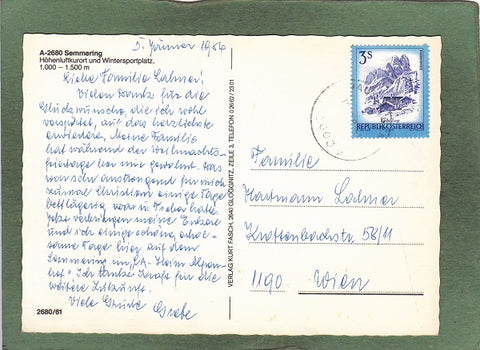 5. Jänner 1984
A-2680 Semmering
Höhenluftkurort und Wintersportplatz,
1.000 – 1.500 m
Liebe Familie Lahner!
Vielen Dank für die
Glückwünsche die ich wohl
verspätet, auf das herzlichste
erwidere. Meine Familie
hat während der Weihnachts-
feiertage bei mir gewohnt. Das
war sehr anstrengend für mich
zumal Christian einige Tage
bettlägerig war u. Fieber hatte.
Jetzt verbringen meine Enkere
und ich einige schöne, erhol-
same Tage hier auf dem
Semmering im
hof". Ich danke Kraft für die
weitere Zukunft.
Viele Grüße Grete
2680/61
VERLAG KURT FASCH, 2640 GLOGGNITZ, ZEILE 3, TELEFON 0 26 62 / 23 01
3 S
REPUBLIK ÖSTERREICH
Familie
Hartmann Lahner
58/11
1190 Wien